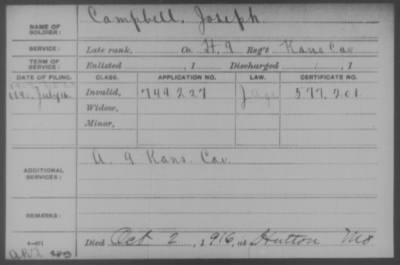 NAME OF SOLDIER: Campbell, Joseph
SERVICE: Late rank, Co. H. 9 Reg't Kans Cav
TERM OF SERVICE: Enlisted , 1 Discharged , 1
DATE OF FILING. CLASS. APPLICATION NO. LAW. CERTIFICATE NO.
July 16 Invalid, 749 227 577,201
Widow,
Minor,
ADDITIONAL SERVICES: A. 9 Kans. Cav.
REMARKS:
Died Oct 2, 1916, at Hutton Mo